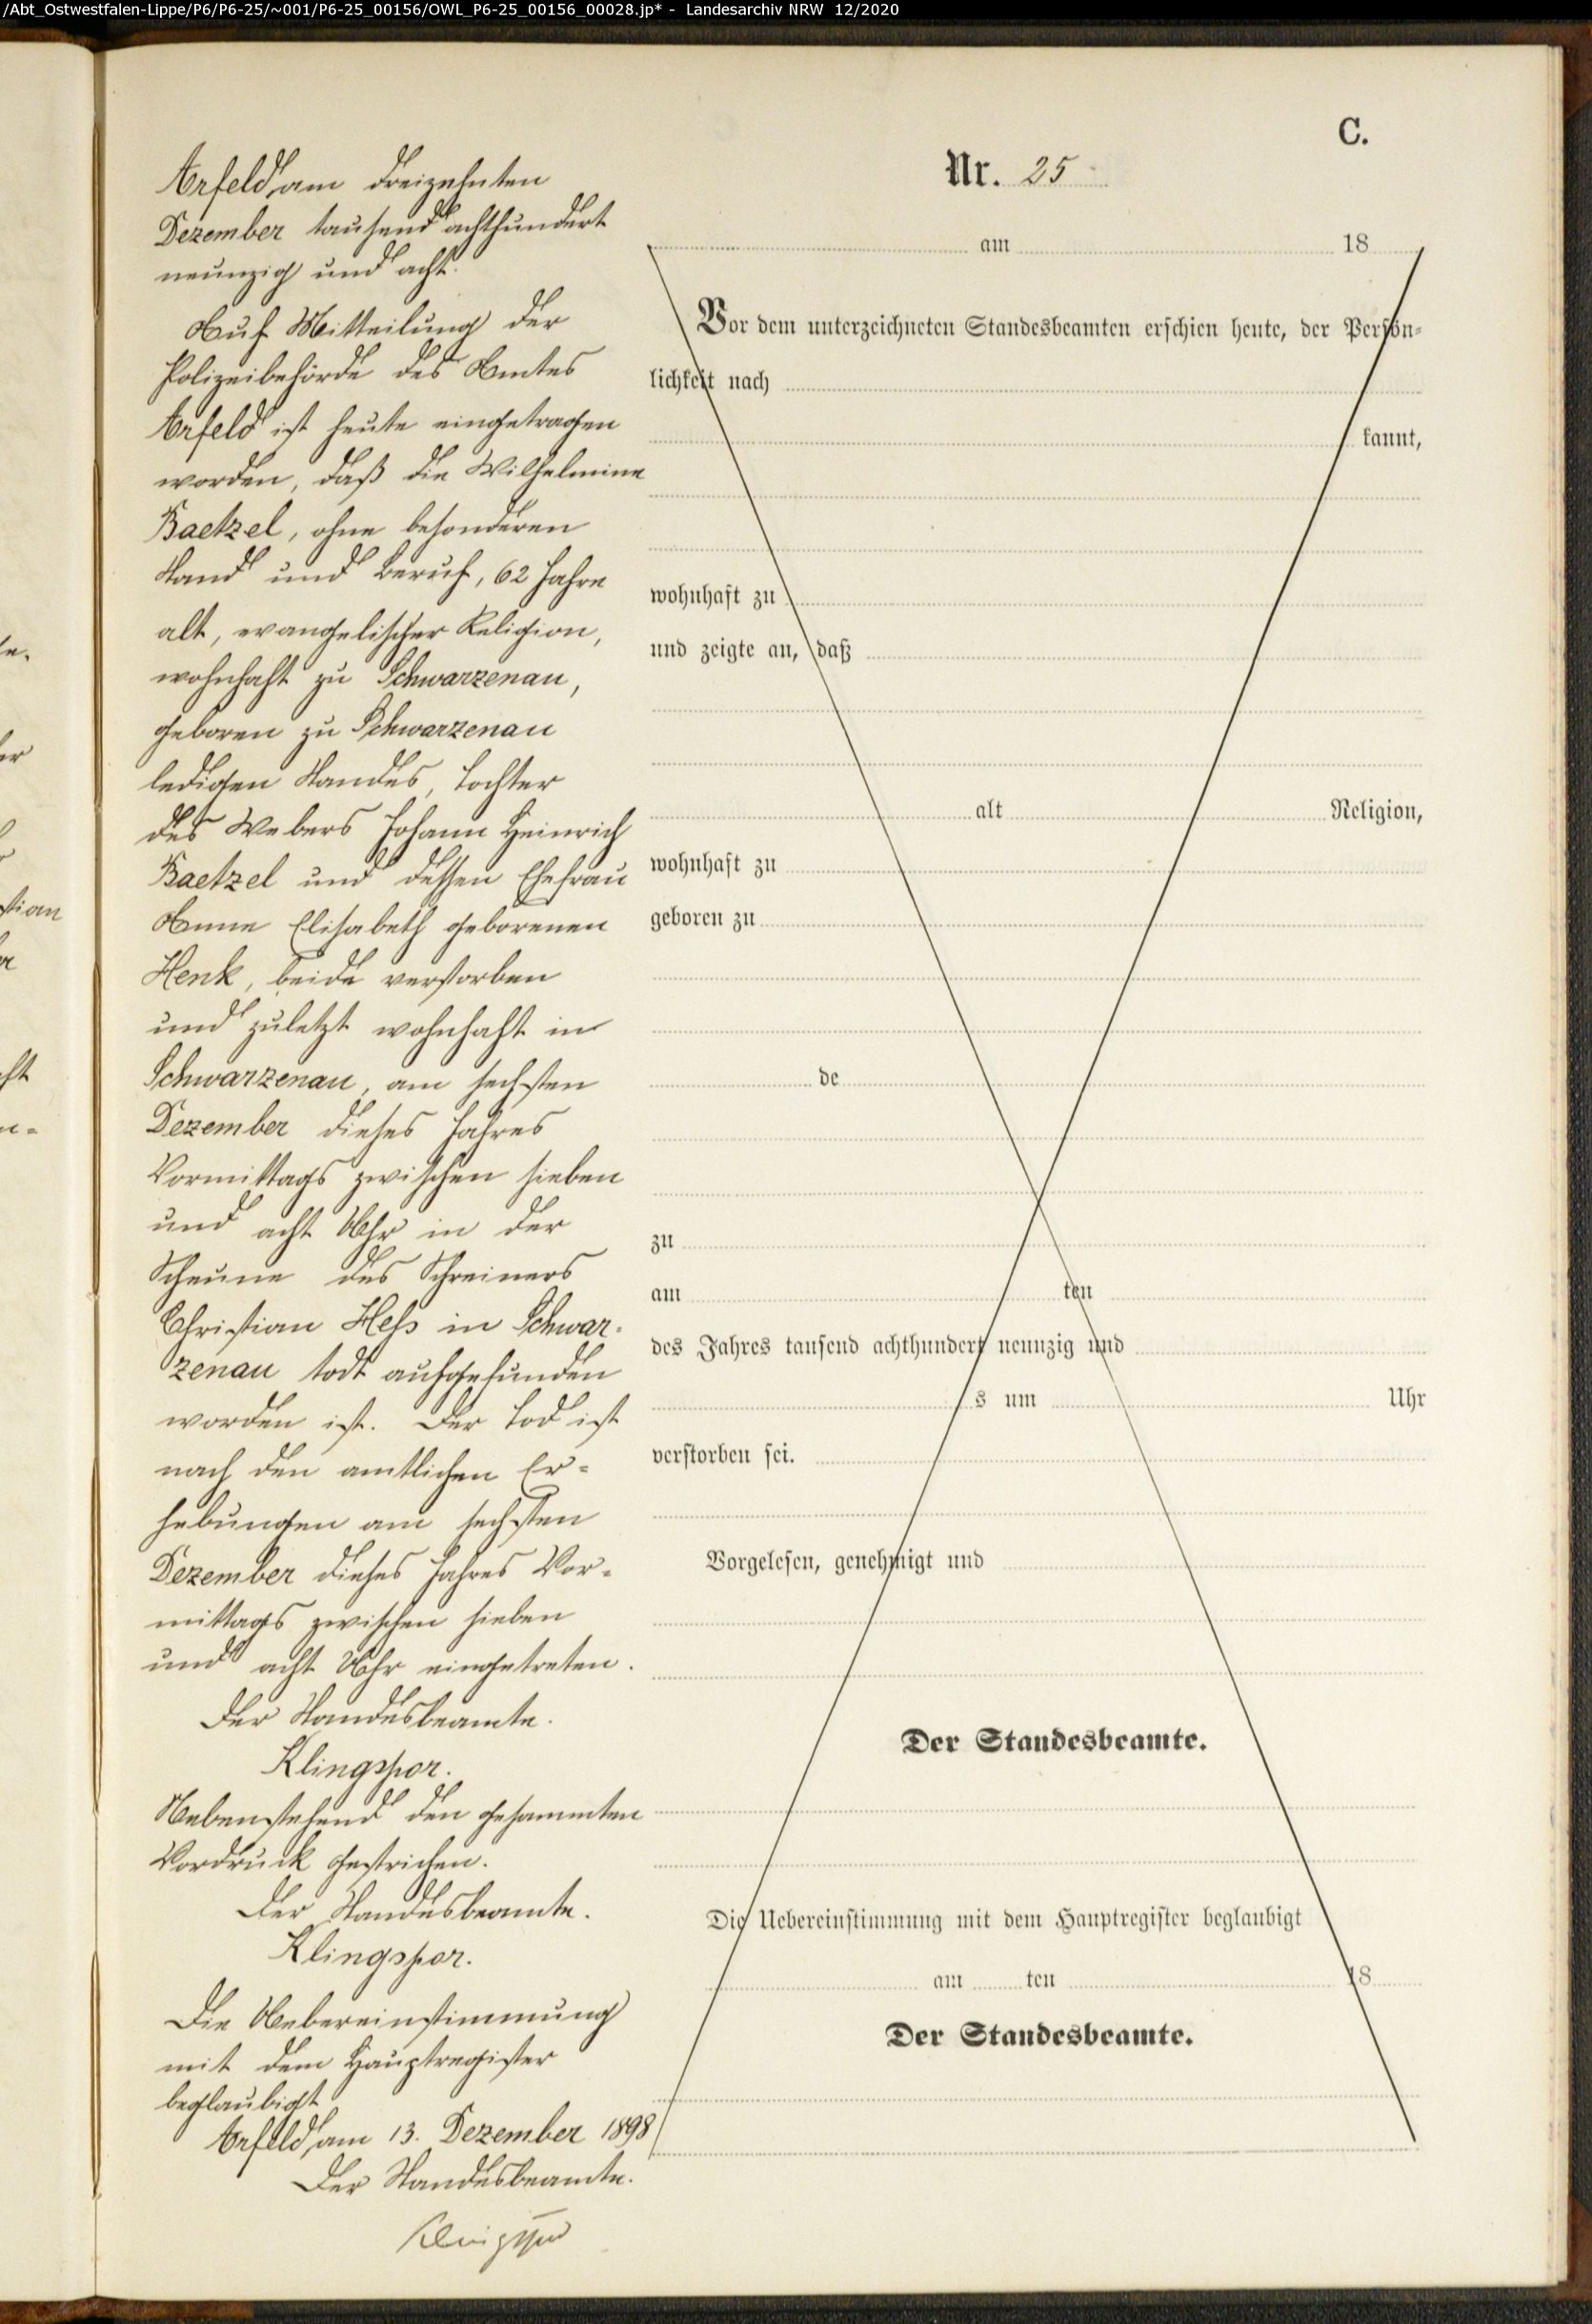 /Abt_Ostwestfalen-Lippe/P6/P6-25/~001/P6-25_00156/OWL_P6-25_00156_00028.jp* - Landesarchiv NRW 12/2020
Arfeld, am dreizehnten
Dezember tausend achthundert
neunzig und acht.
Auf Mitteilung der
Polizeibehörde des Amtes
Arfeld ist heute eingetragen
worden, daß die Wilhelmine
Baetzel, ohne besonderen
Stand und Beruf, 62 Jahre
alt, evangelischer Religion,
wohnhaft zu Schwarzenau,
geboren zu Schwarzenau
ledigen Standes, Tochter
des Webers Johann Heinrich
Baetzel und dessen Ehefrau
Anne Elisabeth geborenen
Henk, beide verstorben
und zuletzt wohnhaft in
Schwarzenau, am sechsten
Dezember dieses Jahres
Vormittags zwischen sieben
und acht Uhr in der
Scheune des Schreiners
Christian Hess in Schwar-
zenau todt aufgefunden
worden ist. Der Tod ist
nach den amtlichen Er-
hebungen am sechsten
Dezember dieses Jahres Vor-
mittags zwischen sieben
und acht Uhr eingetreten.
Der Standesbeamte.
Klingspor.
Nebenstehend den gesammten
Vordruck gestrichen.
Der Standesbeamte.
Klingspor.
Die Uebereinstimmung
mit dem Hauptregister
beglaubigt
Arfeld, am 13. Dezember 1898
Der Standesbeamte.
Klingspor
C.
Nr. 25
am 18
Vor dem unterzeichneten Standesbeamten erschien heute, der Persön-
lichkeit nach
kannt,
wohnhaft zu
und zeigte an, daß
alt Religion,
wohnhaft zu
geboren zu
de
zu
am ten
des Jahres tausend achthundert neunzig und
s um Uhr
verstorben sei.
Vorgelesen, genehmigt und
Der Standesbeamte.
Die Uebereinstimmung mit dem Hauptregister beglaubigt
am ten 18
Der Standesbeamte.